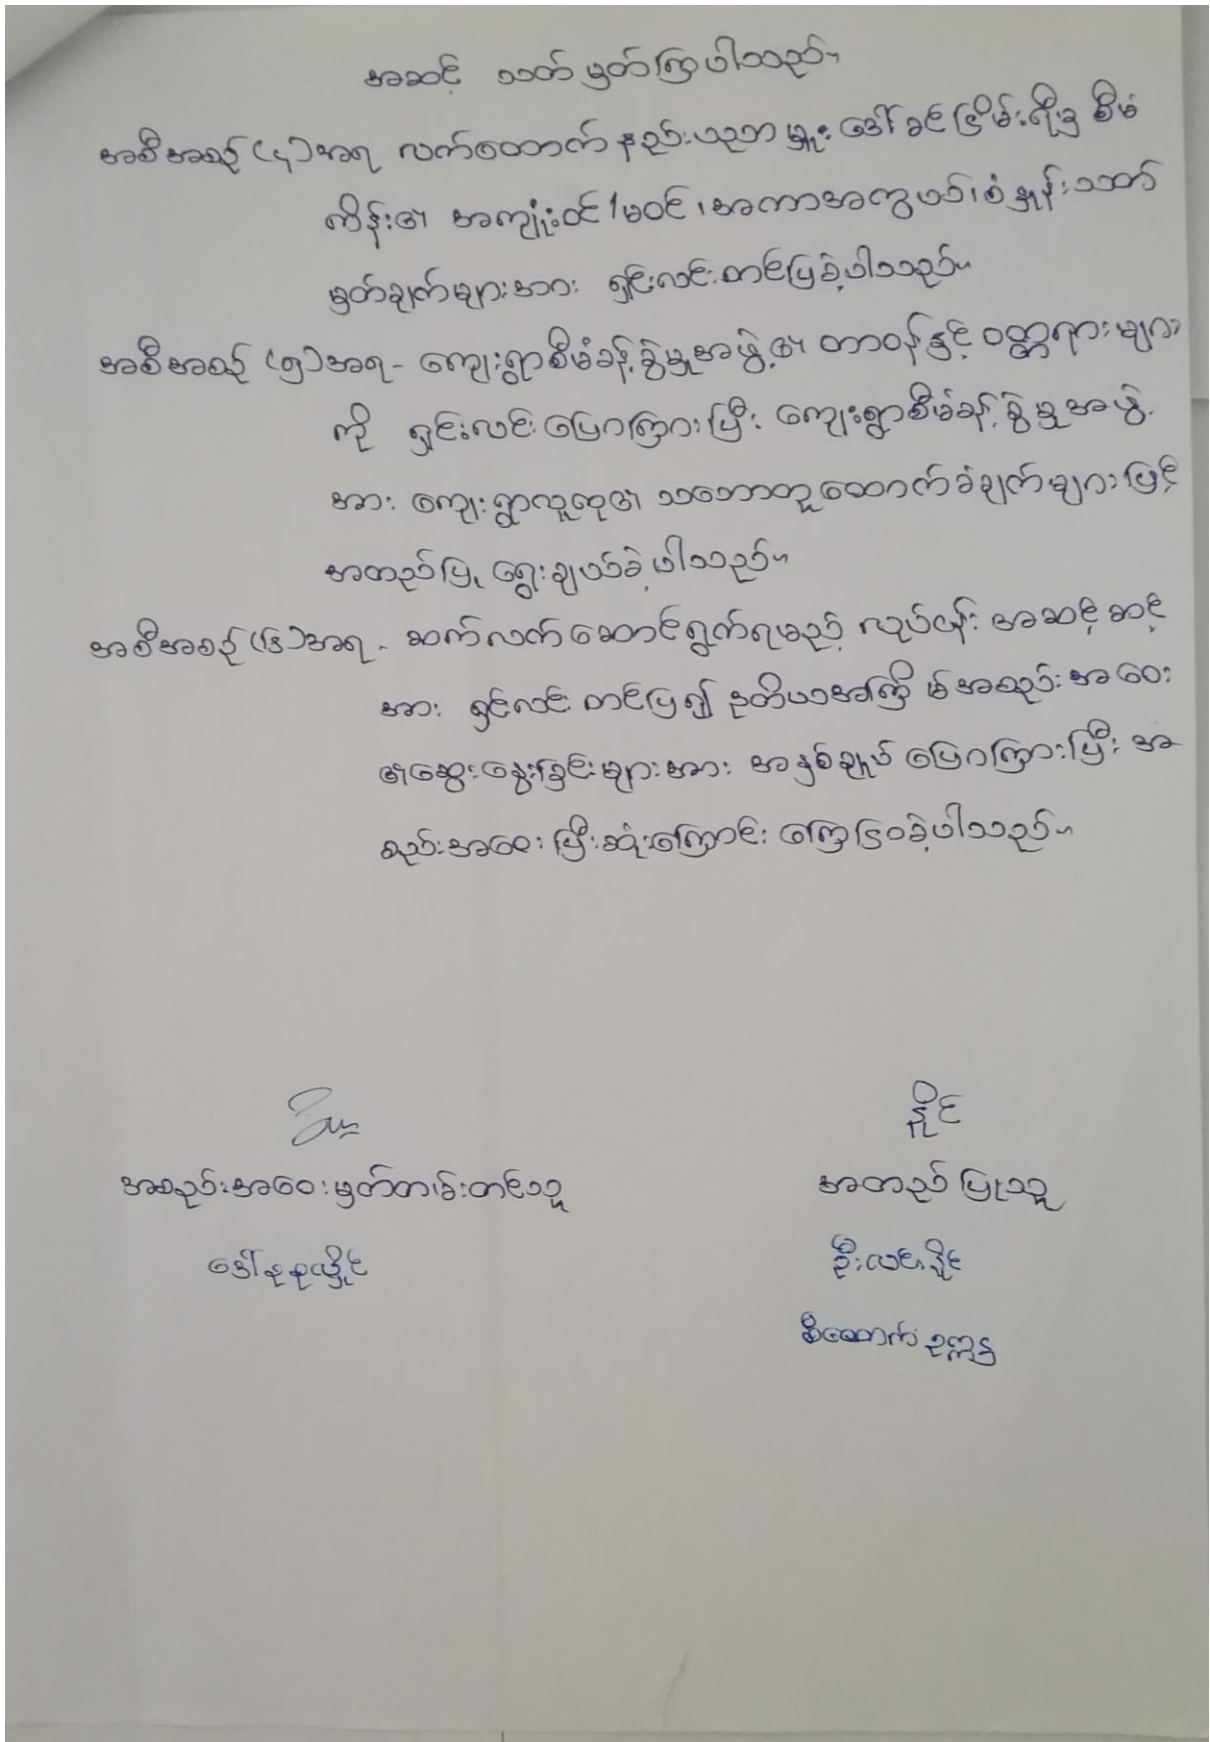 အဆင့် သတ်မှတ်ကြပါသည်။
အစီအစဉ် (၄)အရ လက်ထောက်နည်းပညာမှူး ဒေါ်ခင်ငြိမ်းရီမှ စီမံ
ကိန်း၏ အကျုံးဝင်/မဝင်၊ အကာအကွယ်၊ စံနှုန်းသတ်
မှတ်ချက်များအား ရှင်းလင်းတင်ပြခဲ့ပါသည်။
အစီအစဉ် (၅)အရ - ကျေးရွာစီမံခန့်ခွဲမှုအဖွဲ့၏ တာဝန်နှင့် ဝတ္တရားများ
ကို ရှင်းလင်းပြောကြားပြီး ကျေးရွာစီမံခန့်ခွဲမှုအဖွဲ့
အား ကျေးရွာလူထု၏ သဘောတူထောက်ခံချက်များဖြင့်
အတည်ပြု ရွေးချယ်ခဲ့ပါသည်။
အစီအစဉ် (၆)အရ - ဆက်လက်ဆောင်ရွက်ရမည့် လုပ်ငန်း အဆင့်ဆင့်
အား ရှင်လင်းတင်ပြ၍ ဒုတိယအကြိမ်အစည်းအဝေး
၏ဆွေးနွေးခြင်းများအား အနှစ်ချုပ် ပြောကြားပြီး အ
စည်းအဝေးပြီးဆုံးကြောင်း ကြေငြာခဲ့ပါသည်။
နိုင်
အစည်းအဝေးမှတ်တမ်းတင်သူ အတည်ပြုသူ
ဒေါ်နုနုလှိုင် ဦးလင်းနိုင်
စီထောက် ဥက္ကဌ